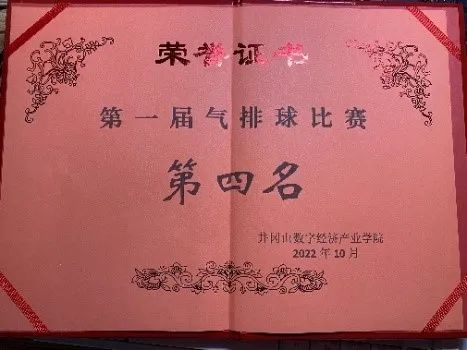 荣誉证书
第一届气排球比赛
第四名
井冈山数字经济产业学院
2022年10月